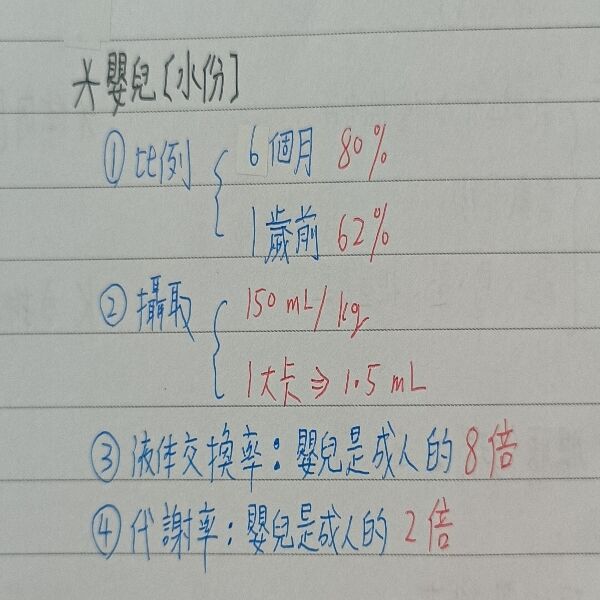 *嬰兒[水份]
① 比例 { 6個月 80%
1歲前 62%
② 攝取 { 150 mL/kg
1大卡⇒1.5 mL
③ 液体交換率：嬰兒是成人的8倍
④ 代謝率：嬰兒是成人的 2倍